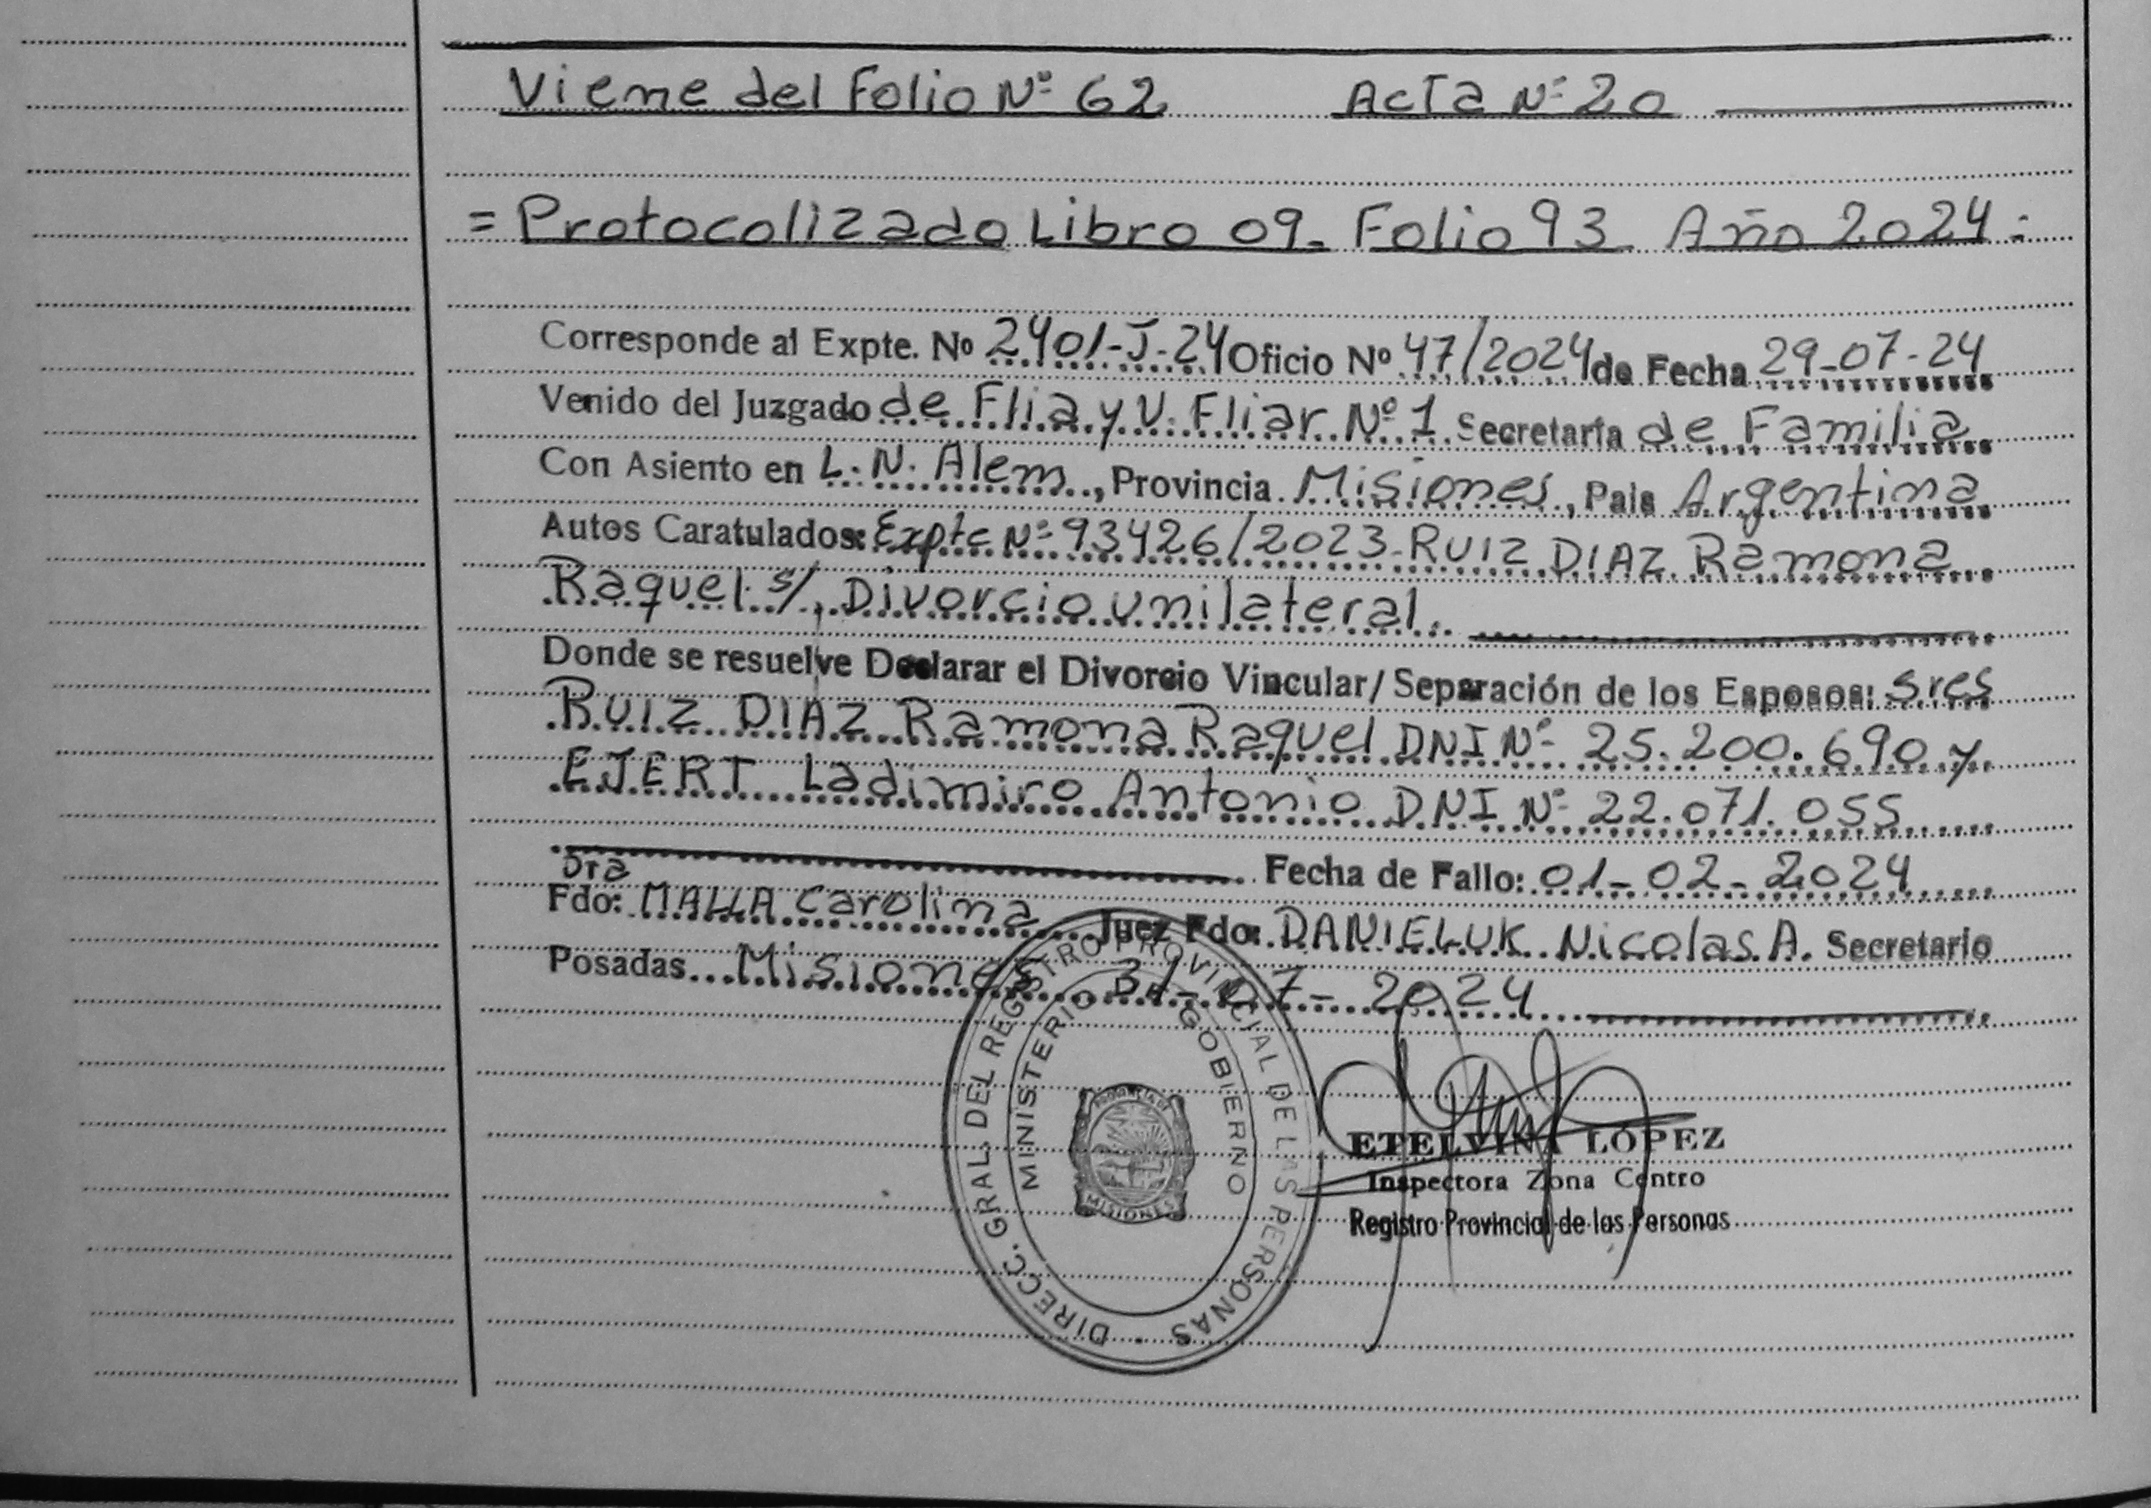 Viene del Folio Nº 62 Acta Nº 20
= Protocolizado Libro 09- Folio 93 Año 2024 =
Corresponde al Expte. Nº 2401-J-24 Oficio Nº 47/2024 de Fecha 29-07-24
Venido del Juzgado de Flia y V. Fliar Nº 1 Secretaría de Familia
Con Asiento en L. N. Alem, Provincia Misiones, Pais Argentina
Autos Caratulados: Expte Nº 93426/2023-RUIZ DIAZ Ramona
Raquel s/ Divorcio unilateral.
Donde se resuelve Declarar el Divorcio Vincular/ Separación de los Esposos: Sres
RUIZ DIAZ Ramona Raquel DNI Nº 25.200.690 y
EJERT Ladimiro Antonio DNI Nº 22.071.055
Fecha de Fallo: 01-02-2024
Dra
Fdo: MALLA Carolina Juez Fdo: DANIELUK Nicolas A. Secretario
Posadas Misiones 31-07-2024
DIRECC. GRAL. DEL REGISTRO PROVINCIAL DE LAS PERSONAS
MINISTERIO DE GOBIERNO
PROVINCIA DE
MISIONES
ETELVINA LOPEZ
Inspectora Zona Centro
Registro Provincial de las Personas